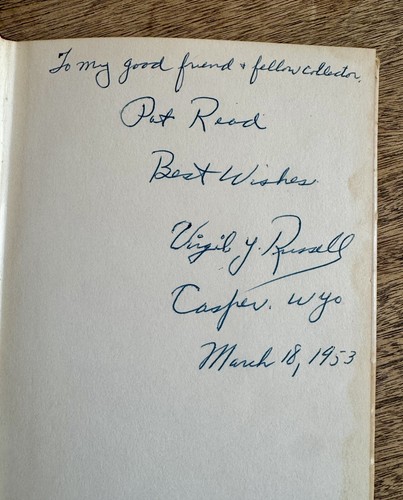 To my good friend + fellow collector,
Pat Read
Best Wishes
Virgil Y. Russell
Casper. Wyo
March 18, 1953